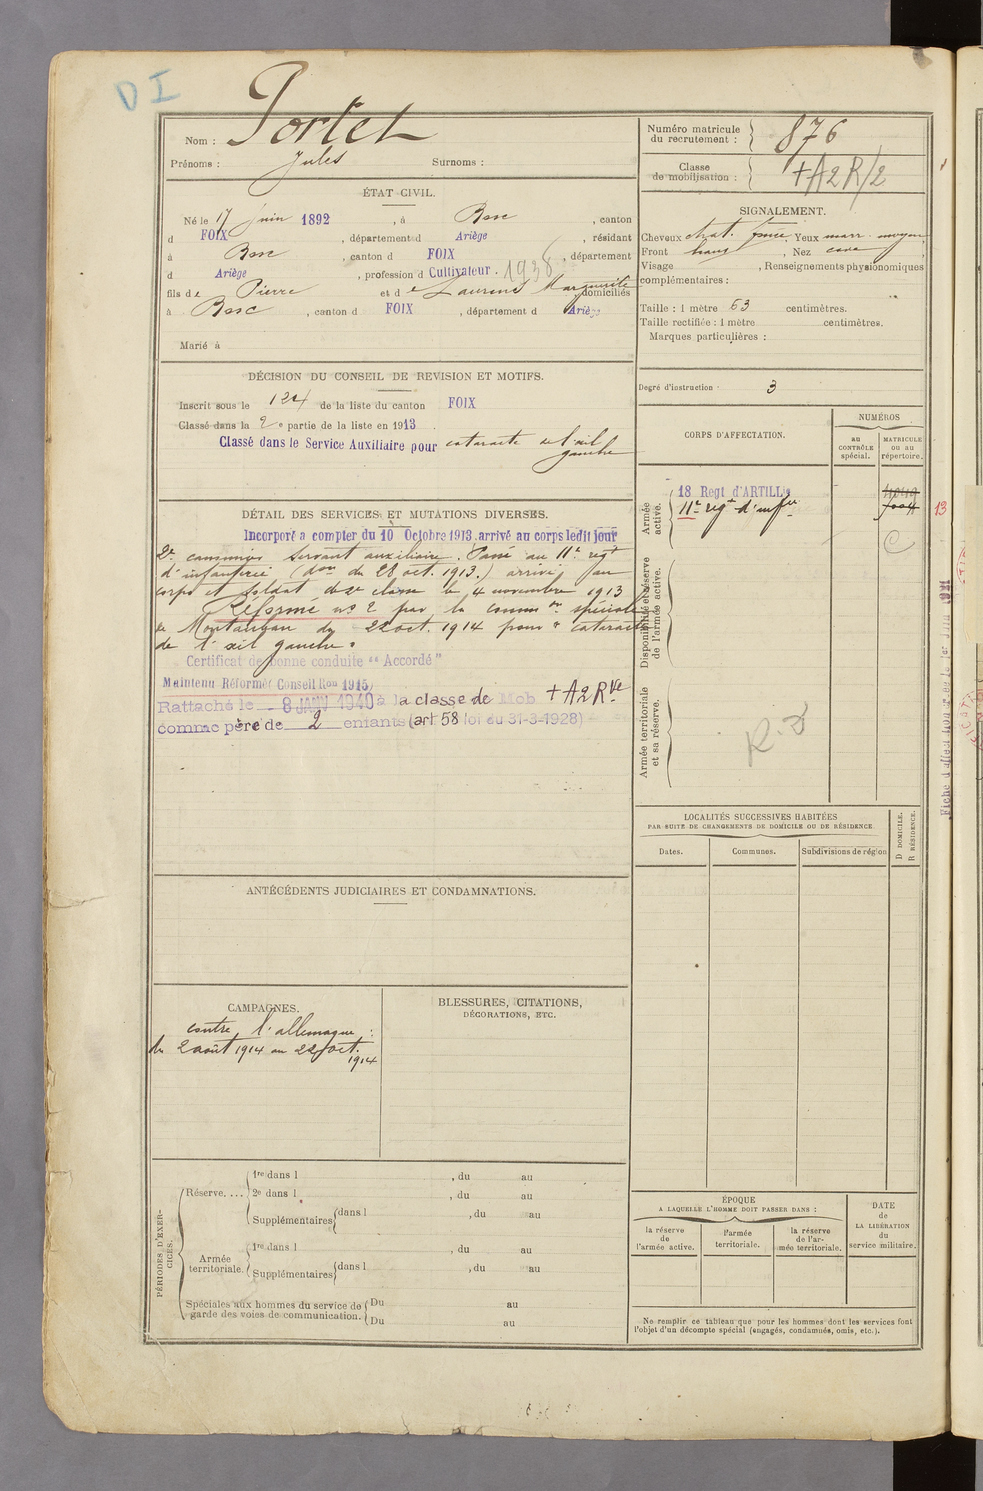 D I
Nom : Portet
Prénoms : Jules Surnoms :
Numéro matricule du recrutement : 876
Classe de mobilisation : + A2R/2
ÉTAT CIVIL.
Né le 17 juin 1892, à Bosc, canton
d FOIX, département d Ariège, résidant
à Bosc, canton d FOIX, département
d Ariège, profession d Cultivateur. 1938
fils de Pierre et de Laurens Marguerite domiciliés
à Bosc, canton d FOIX, département d Ariège
Marié à
SIGNALEMENT.
Cheveux chat. foncé, Yeux marr. moyen,
Front haut, Nez cave
Visage , Renseignements physionomiques
complémentaires :
Taille : 1 mètre 63 centimètres.
Taille rectifiée : 1 mètre centimètres.
Marques particulières :
Degré d'instruction : 3
DÉCISION DU CONSEIL DE REVISION ET MOTIFS.
Inscrit sous le n° 124 de la liste du canton FOIX
Classé dans la 2e partie de la liste en 1913.
Classé dans le Service Auxiliaire pour cataracte de l'œil
gauche
CORPS D'AFFECTATION.
NUMÉROS
AU CONTRÔLE spécial.
MATRICULE OU AU répertoire.
Armée active.
18 Regt d'ARTILLie
11e regt d'infie
7004
Disponibilité et réserve de l'armée active.
Armée territoriale et sa réserve.
DÉTAIL DES SERVICES ET MUTATIONS DIVERSES.
Incorporé a compter du 10 Octobre 1913, arrivé au corps ledit jour
2e canonnier servant auxiliaire. Passé au 11e regt
d'infanterie (don du 28 oct. 1913.) arrivé au
corps et soldat de 2e classe le 4 novembre 1913
Réformé n° 2 par la common spéciale
de Montauban du 22 oct. 1914 pour "cataracte
de l'œil gauche".
Certificat de bonne conduite "Accordé"
Maintenu Réformé (Conseil Ron 1915)
Rattaché le 8 JANV 1940 à la classe de Mob + A2Rve
comme père de 2 enfants (art 58 loi du 31-3-1928)
R. D
LOCALITÉS SUCCESSIVES HABITÉES
PAR SUITE DE CHANGEMENTS DE DOMICILE OU DE RÉSIDENCE.
Dates.
Communes.
Subdivisions de région
D DOMICILE.
R RÉSIDENCE.
ANTÉCÉDENTS JUDICIAIRES ET CONDAMNATIONS.
CAMPAGNES.
contre l'allemagne :
du 2 août 1914 au 22 oct.
1914
BLESSURES, CITATIONS,
DÉCORATIONS, ETC.
PÉRIODES D'EXERCICES.
Réserve....
1re dans l , du au
2e dans l , du au
Supplémentaires dans l , du au
au
Armée territoriale.
1re dans l , du au
Supplémentaires dans l , du au
Spéciales aux hommes du service de garde des voies de communication.
Du au
Du au
ÉPOQUE
A LAQUELLE L'HOMME DOIT PASSER DANS :
la réserve de l'armée active.
l'armée territoriale.
la réserve de l'armée territoriale.
DATE de LA LIBÉRATION du service militaire.
Ne remplir ce tableau que pour les hommes dont les services font
l'objet d'un décompte spécial (engagés, condamnés, omis, etc.).
13